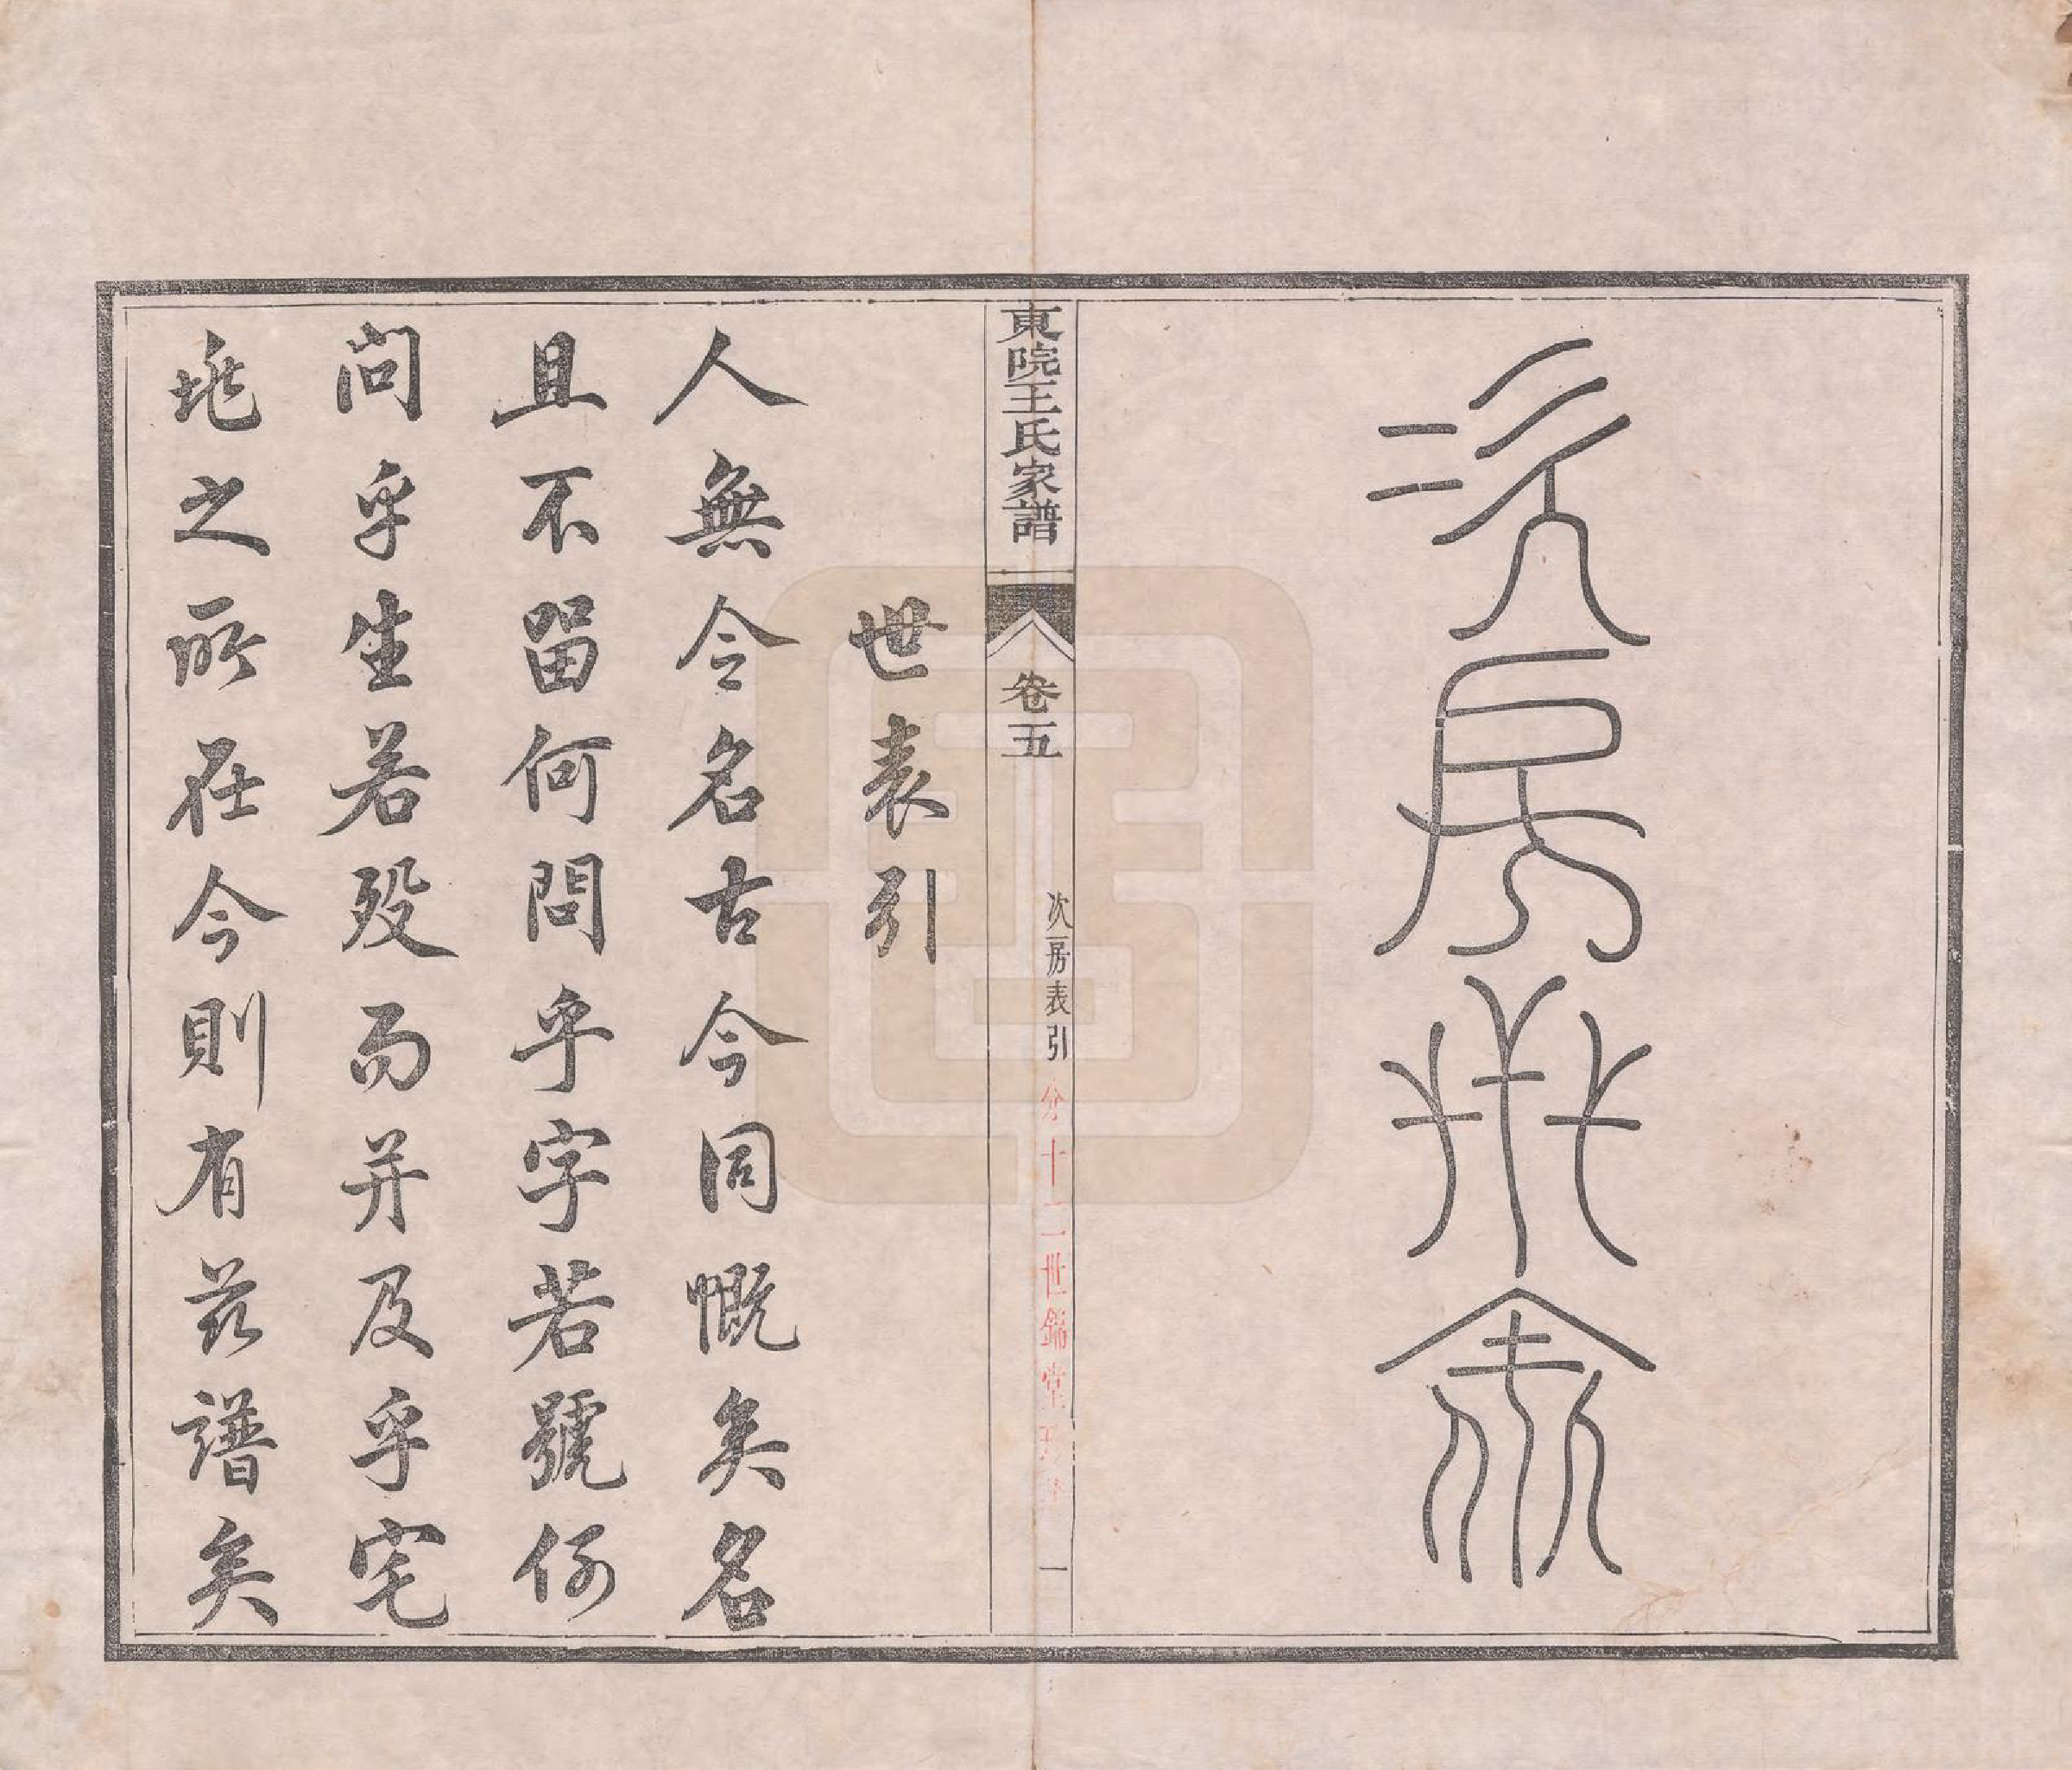 次房
東院王氏家譜
卷五
次房表引
分十二世
堂
一
世表引
人無令名古今同慨矣名
且不留何問乎字若號何
问乎生若殁而并及乎宅
垗之所在今則有茲譜矣